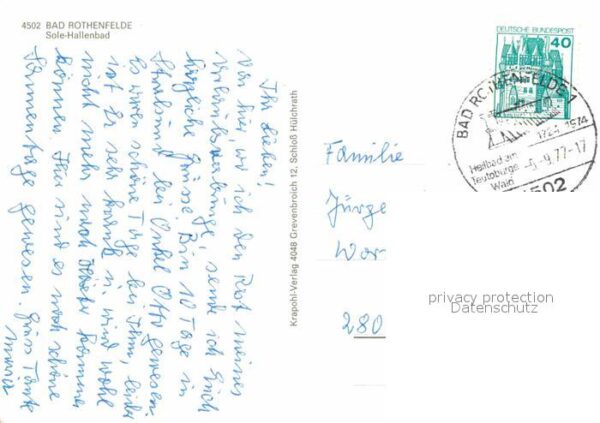 4502 BAD ROTHENFELDE
Sole-Hallenbad
Ihr Lieben!
Von hier, wo ich den Rest meines
Urlaubs verbringe, sende ich Euch
herzliche Grüsse. Bin 10 Tage in
Stralsund bei Onkel Otto gewesen.
Es waren schöne Tage bei Ihm, leider
ist Er sehr krank u. wird wohl
nicht mehr nach kommen
können. Hier sind es noch schöne
Sonnentage gewesen. Gruss Tante
Maria
Krapohl-Verlag 4048 Grevenbroich 12, Schloß Hülchrath
DEUTSCHE BUNDESPOST
40
BAD ROTHENFELDE 1
1724-1974
Heilbad am
Teutoburger
Wald
-5.-9.77-17
4502
Familie
Jürge
Wor
280
privacy protection
Datenschutz